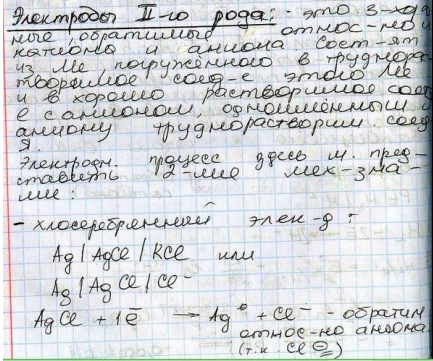 Электроды II-го рода: - это 3-ход
ные, обратимые относ-но и
катиона и аниона. Сост-ят
из Ме погружённого в труднора
творимое соед-е этого Ме
и в хорошо растворимое соед
е с анионом, одноимённый
аниону труднорастворим. соед
я.
Электродн. процесс здесь м. пред-
ставить 2-мя мех-зма-
ми:
- хлосеребрянный элек-д:
Ag | AgCl / KCl или
Ag | AgCl / Cl⁻
AgCl + 1ē → Ag⁰ + Cl⁻ - обратим
относ-но аниона.
(т.к. Cl⊖)